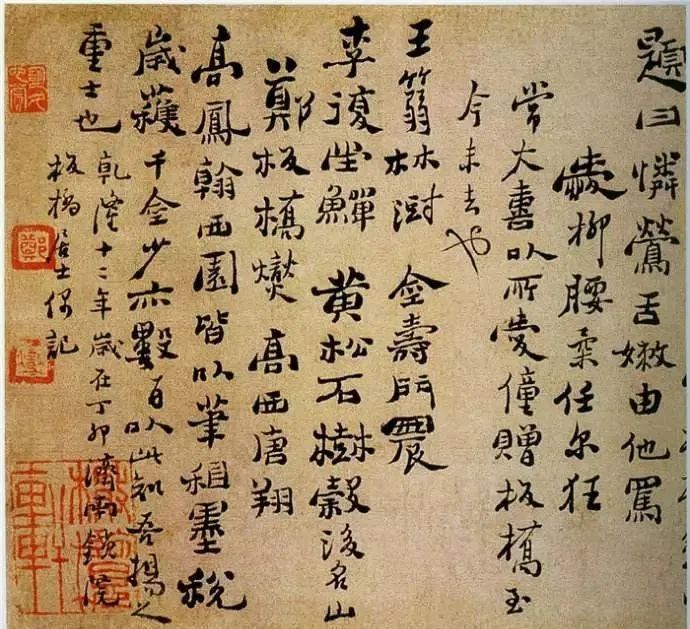 題曰憐鶯舌嫩由他罵
愛柳腰柔任尔狂
常大喜以所愛僮贈板橋至
今未去也
王篛林澍 金壽門農
李復堂鱓 黃松石樹榖後名山
鄭板橋燮 高西唐翔
高鳳翰西園皆以筆租墨稅
歲獲千金少亦數百以此知吾揚之
重士也
乾隆十二年歲在丁卯濟南鎖院
板橋居士偶記
鄭